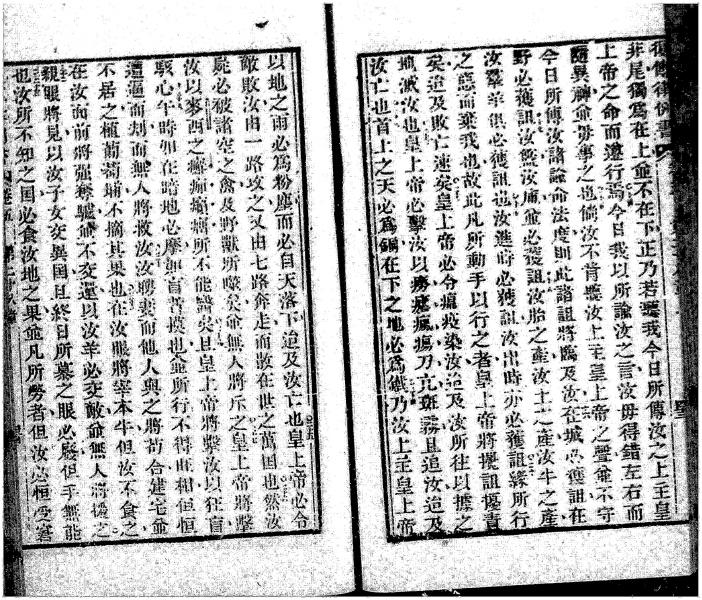 復傳律例書
非尾獨為在上並不在下正乃若聽我今日所傳汝之上主皇
上帝之命而遵行焉今日我以所諭汝之言汝毋得錯左右而
隨異神並毋事之也倘汝不肯聽汝上主皇上帝之聲並不守
今日所傳汝諸諭命法度則此諸詛將臨及汝在城必獲詛在
野必獲詛汝盤汝庫並必獲詛汝胎之產汝土之產汝牛之產
汝羣羊俱必獲詛也汝進時必獲詛汝出時亦必獲詛緣所行
之惡而棄我也故此凡所動手以行之者皇上帝將攪詛擾責
矣迨及敗亡速矣皇上帝必令瘟疫染汝迨及汝所往以據之
地滅汝也皇上帝必擊汝以癆瘧刀亢斑霧且追汝迨及
汝亡也首上之天必為銅在下之地必為鐵乃汝上主皇上帝
以地之雨必為粉塵而必自天落下迨及汝亡也皇上帝必令
敵敗汝由一路攻之又由七路奔走而散在世之萬國也然汝
屍必被諸空之禽及野獸所噬矣並無人將斥之皇上帝將擊
汝以麥西之瘡痲所不能醫矣且皇上帝將擊汝以狂盲
駭心午時如在暗地必摩如盲者摸也並所行不得由相但恒
遭逼而刦而無人將救汝汝聘妻而他人與之將苟合建宅並
不居之植葡萄埔不摘其果也在汝眼將宰本牛但汝不食之
在汝面前將強奪驢並不交還以汝羊必交敵並無人將援之
親眼將見以汝子女交異国且終日所慕之眼必廢但手無能
也汝所不知之国必食汝地之果並凡所勞者但汝必恒受窘